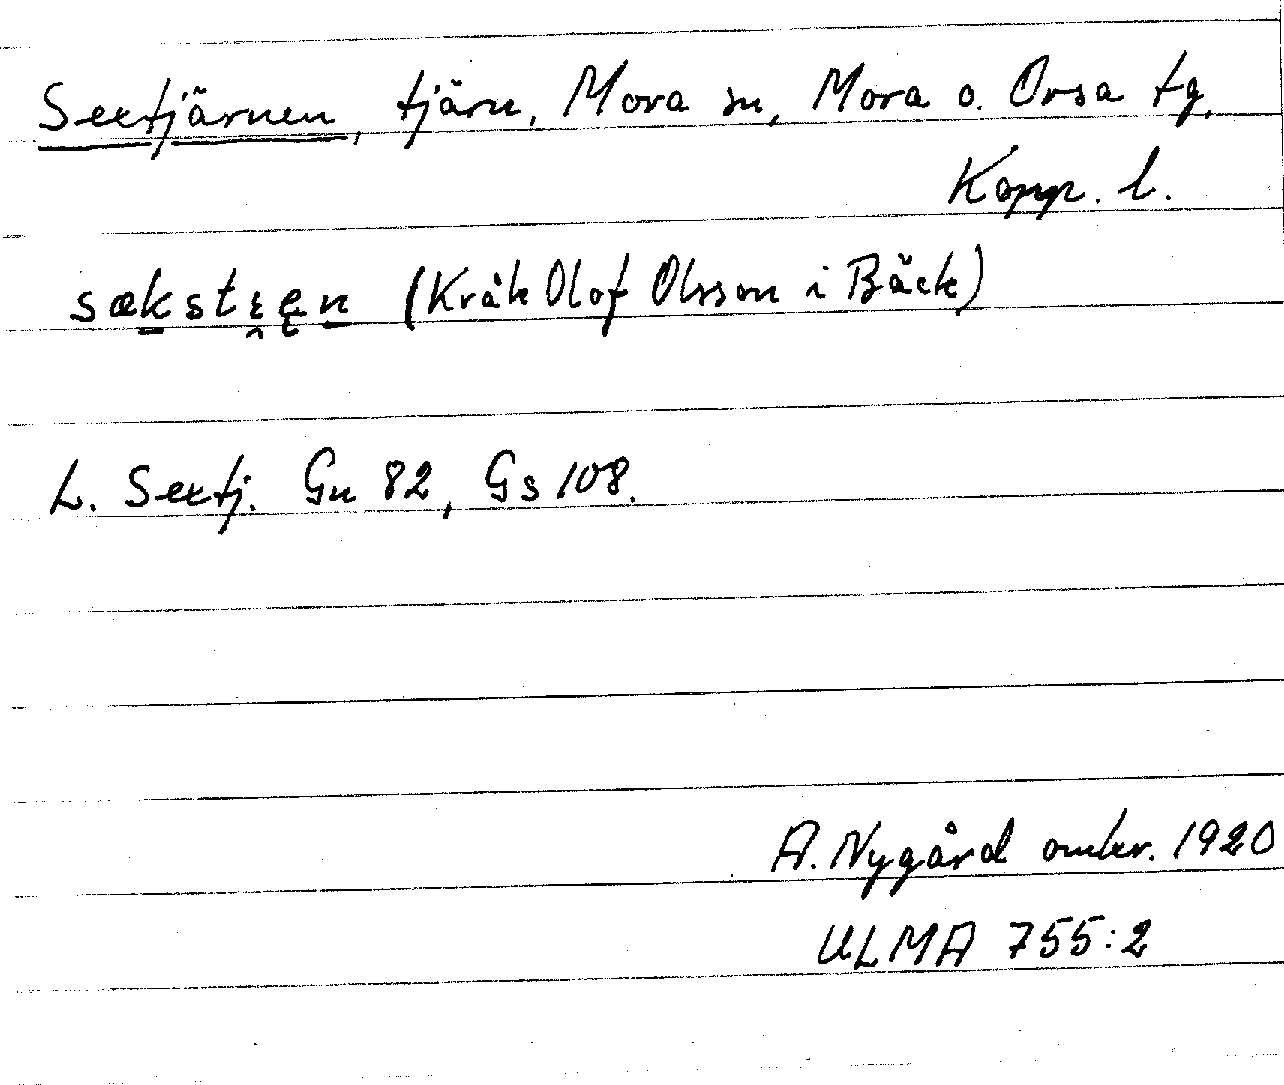 Sextjärnen, tjärn, Mora sn, Mora o. Orsa tg,
Kopp. l.
(Kråk Olof Olsson i Bäck)
L. Sextj. Gn 82, Gs 108.
A. Nygård omkr. 1920
ULMA 755:2